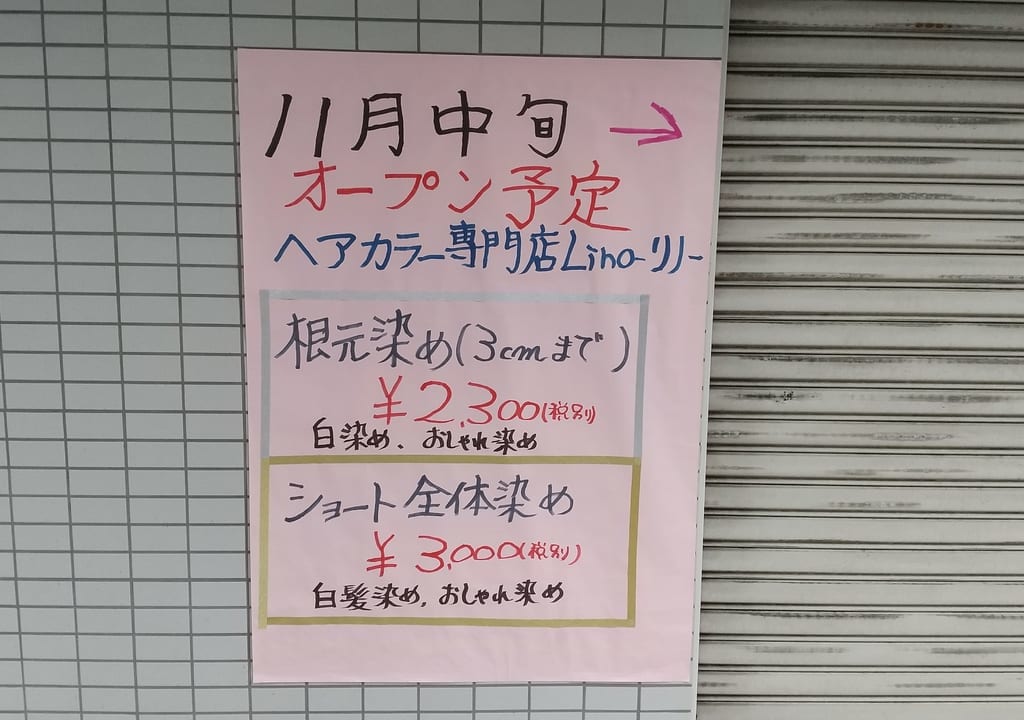 11月中旬 →
オープン予定
ヘアカラー専門店Lino-リノ-
根元染め(3cmまで)
¥2,300(税別)
白染め、おしゃれ染め
ショート全体染め
¥3,000(税別)
白髪染め、おしゃれ染め